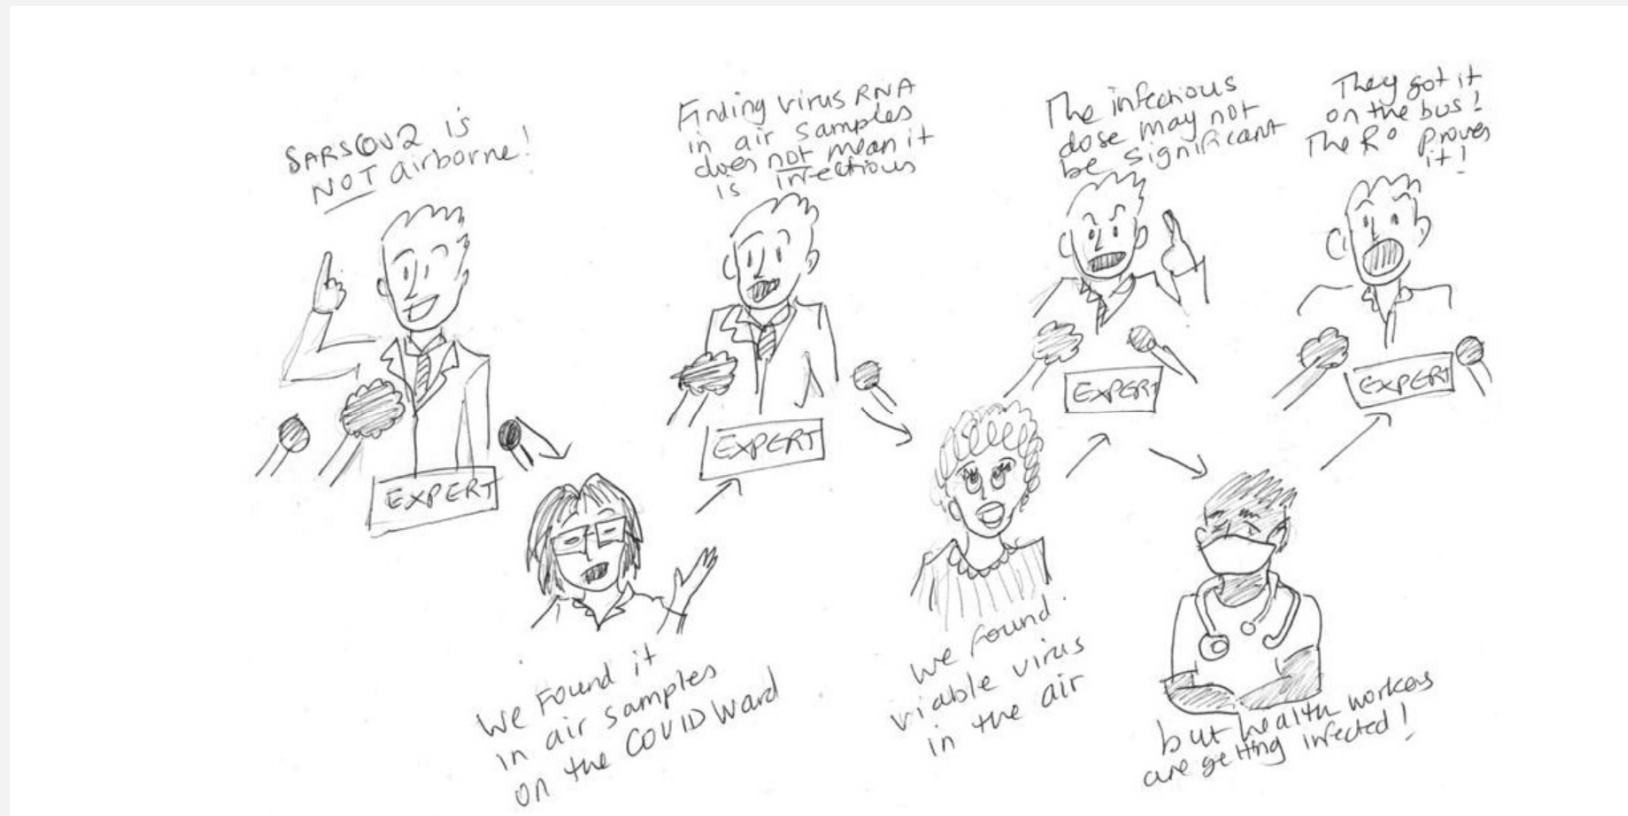 SARSCOV2 is
NOT airborne!
EXPERT
We Found it
in air samples
on the COVID Ward
Finding virus RNA
in air samples
does not mean it
is infectious
EXPERT
We found
viable virus
in the air
The infectious
dose may not
be significant
EXPERT
but health workers
are getting infected!
They got it
on the bus!
The R° proves
it!
EXPERT